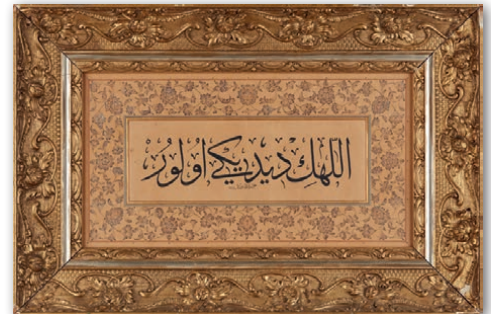 اللهك ديديكى اولور